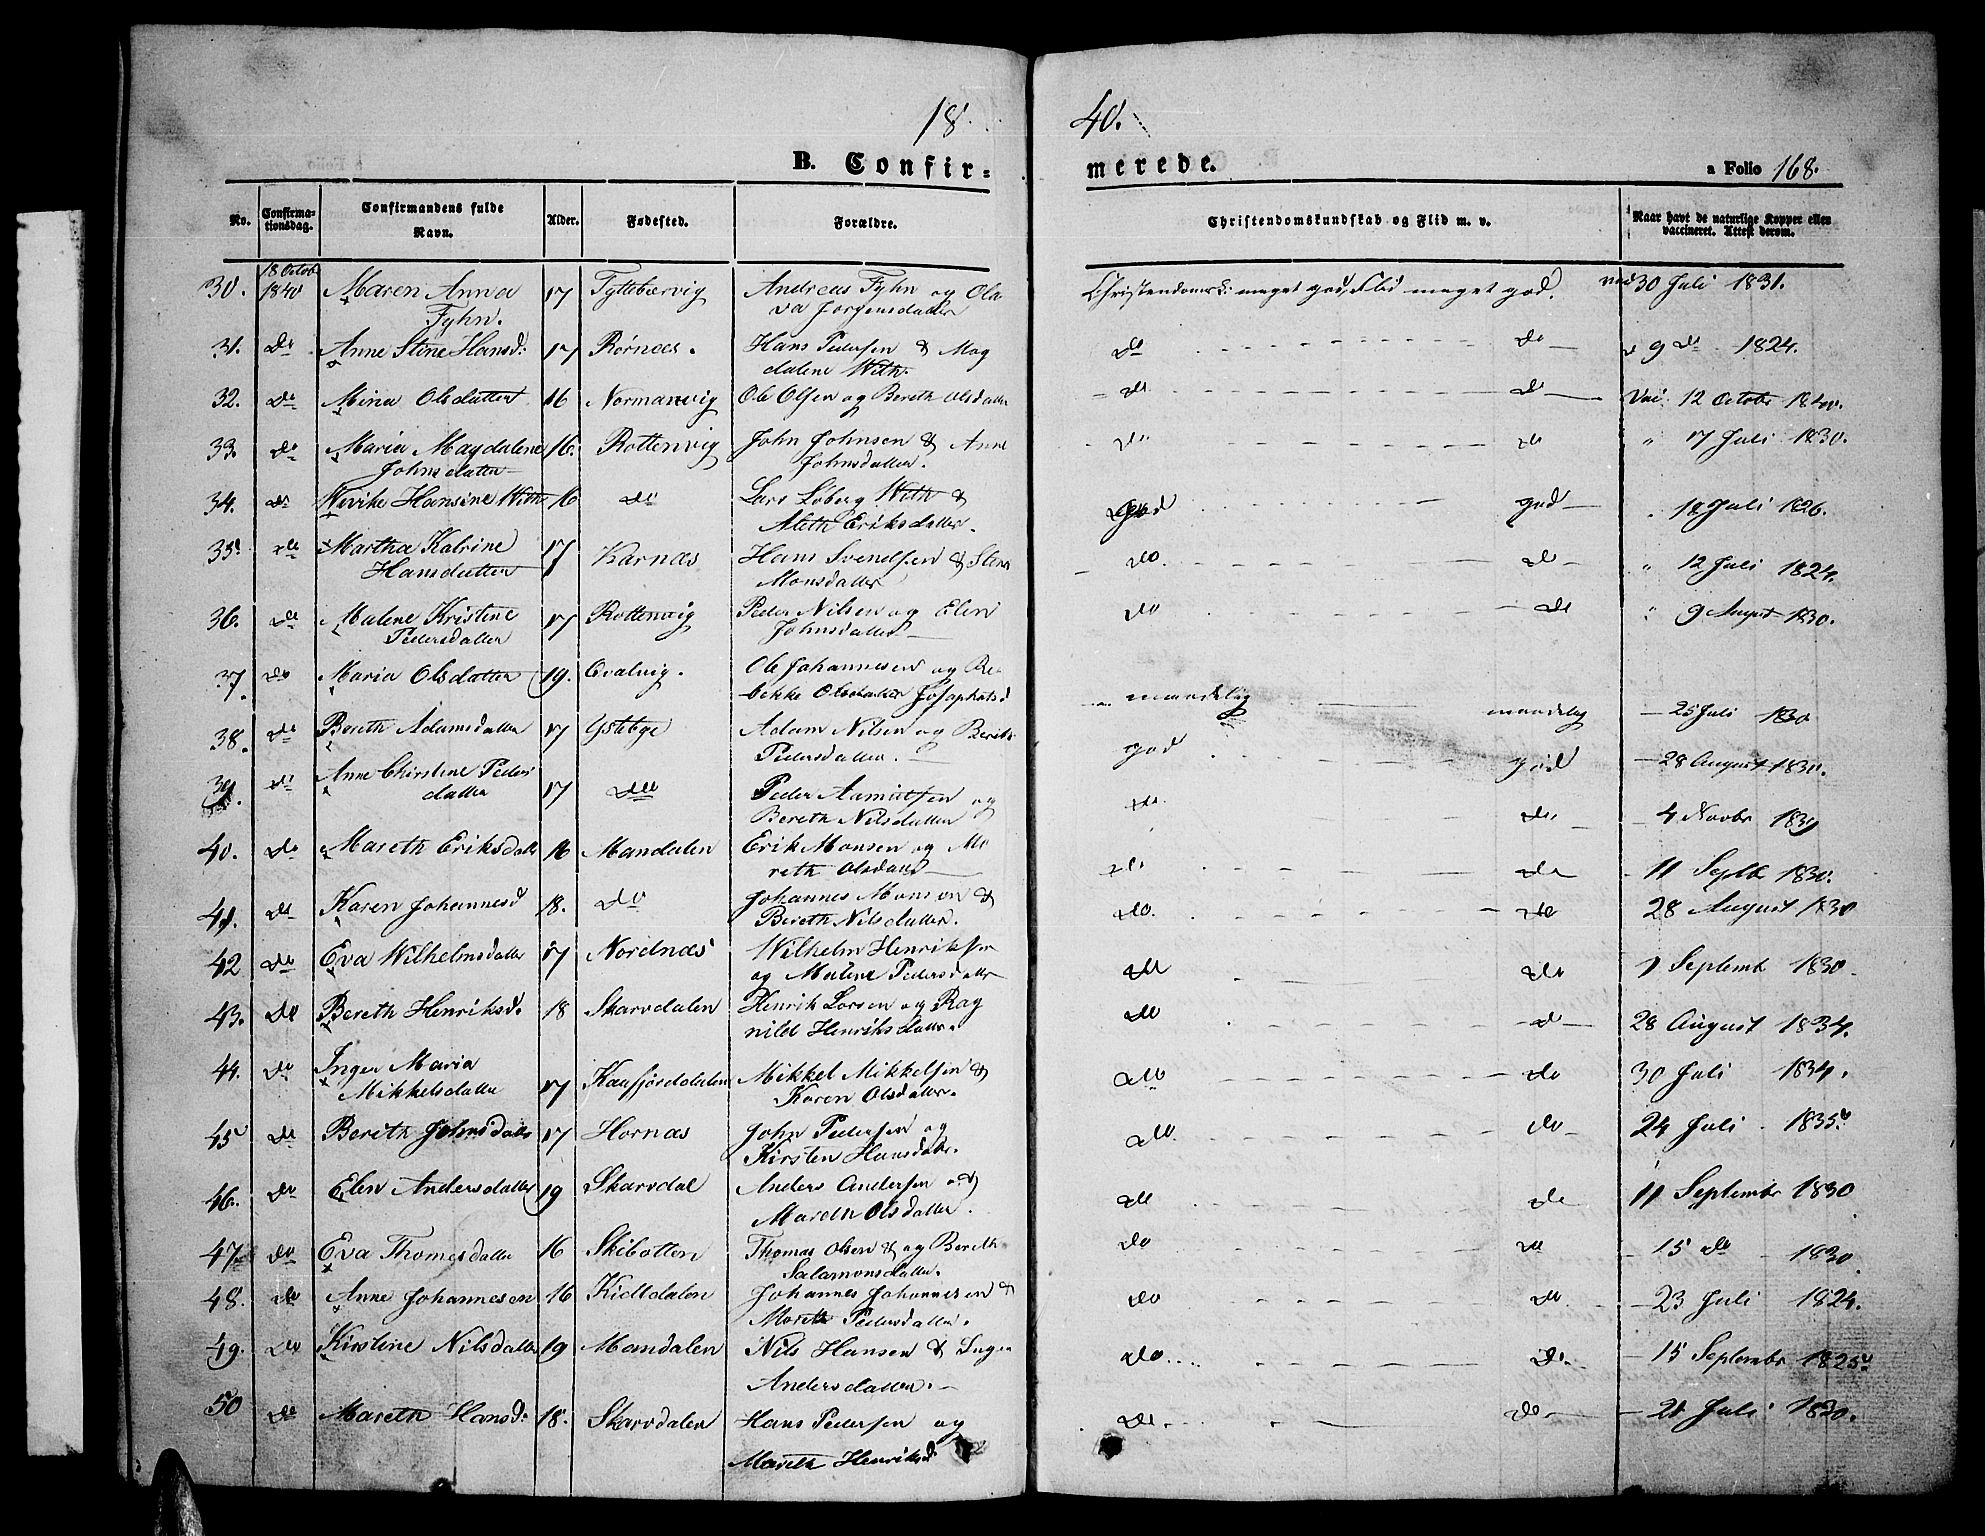 18 40.
B. Confir= merede. a Folio 168.
No. Confirma-tionsdag. Confirmandens fulde Navn. Alder. Fødested. Forældre. Christendomskundskab og Flid m. v. Naar havt de naturlige Kopper eller vaccineret. Attest derom.
30. 18 Octob 1840 Maren Anna 17 Tyttebærvig Andreas Fyhn og Ola Christendomsk: meget god, Flid meget god. 30 Juli 1831.
Fyhn. va Jørgensdatter
31. do Anne Stine Hansd: 17 Rørnæs. Hans Pedersen & Mag do do 9 do 1824.
dalene With.
32. do Mina Olsdatter 16 Normanvig Ole Olsen og Bereth Olsdatter do do 12 Octobr 1840.
33. do Maria Magdalene 16. Rottenvig John Johnsen & Anne do do " 17 Juli 1830.
Johnsdatter Johnsdatter.
34. do Hansine With 16 do Lars Løberg With & god god " 18 Juli 1826.
Aleth Eriksdatter.
35. do Martha Katrine 17 Karnæs Hans Svendsen & Stina do. do " 12 Juli 1824.
Hansdatter Monsdatter
36. do Malene Kristine 17 Rottenvig Peder Nilsen og Elen do do " 9 August 1830.
Pedersdatter Johnsdatter
37. do Maria Olsdatter 19. Qvalvig. Ole Johannesen og Re maadelig maadelig 25 Juli 1830
bekke Olsdatter Josaphatsd
38. do Bereth Adamsdatter 17 Ystebye Adam Nilsen og Berith god god 28 August 1830.
Pedersdatter.
39. do Anne Chirstine Peders 17 do Peder Aamundsen og do. do. 4 Novbr
datter Bereth Nilsdatter
40. do Mareth Eriksdatter 16 Mandalen Erik Monsen og Ma do do 11 Septb 1830.
reth Olsdatter
41. do Karen Johannesd 18. do Johannes Monsen & do. do 28 August 1830
Bereth Nilsdatter.
42 do Eva Wilhelmsdatter 17 Nordnæs Wilhelm Henriksen do do 1 Septemb 1830.
og Malene Pedersdatter
43. do Bereth Henriksd. 18 Skarvdalen Henrik Larsen og Rag do do 28 August 1834.
nild Henriksdatter.
44. do Inger Maria 17 Kaafjorddalen Mikkel Mikkelsen & do do 30 Juli 1834.
Mikkelsdatter Karen Olsdatter.
45 do Berith Johnsdatter 17 Hornæs John Pedersen og do. do 24 Juli 1835.
Kirsten Hansdatter.
46. do Elen Andersdatter 19 Skarvdal Anders Andersen og do do 11 Septembr 1830
Mareth Olsdatter.
47. do Eva Thomesdatter 16 Skibotten Thomas Olsen & og Bereth do do 15 do 1830.
Salamonsdatter.
48. do Anne Johannesen 16 Kidtdalen Johannes Johannesen & do do 23 Juli 1824.
Mareth Pedersdatter.
49. do Kirstine Nilsdatter 19 Mandalen Nils Hansen & Inger do do. 15 Septembr 1825.
Andersdatter.
50 do Mareth Hansd: 18. Skarvdalen Hans Pedersen og do. do. 21 Juli 1830.
Mareth Henriksd